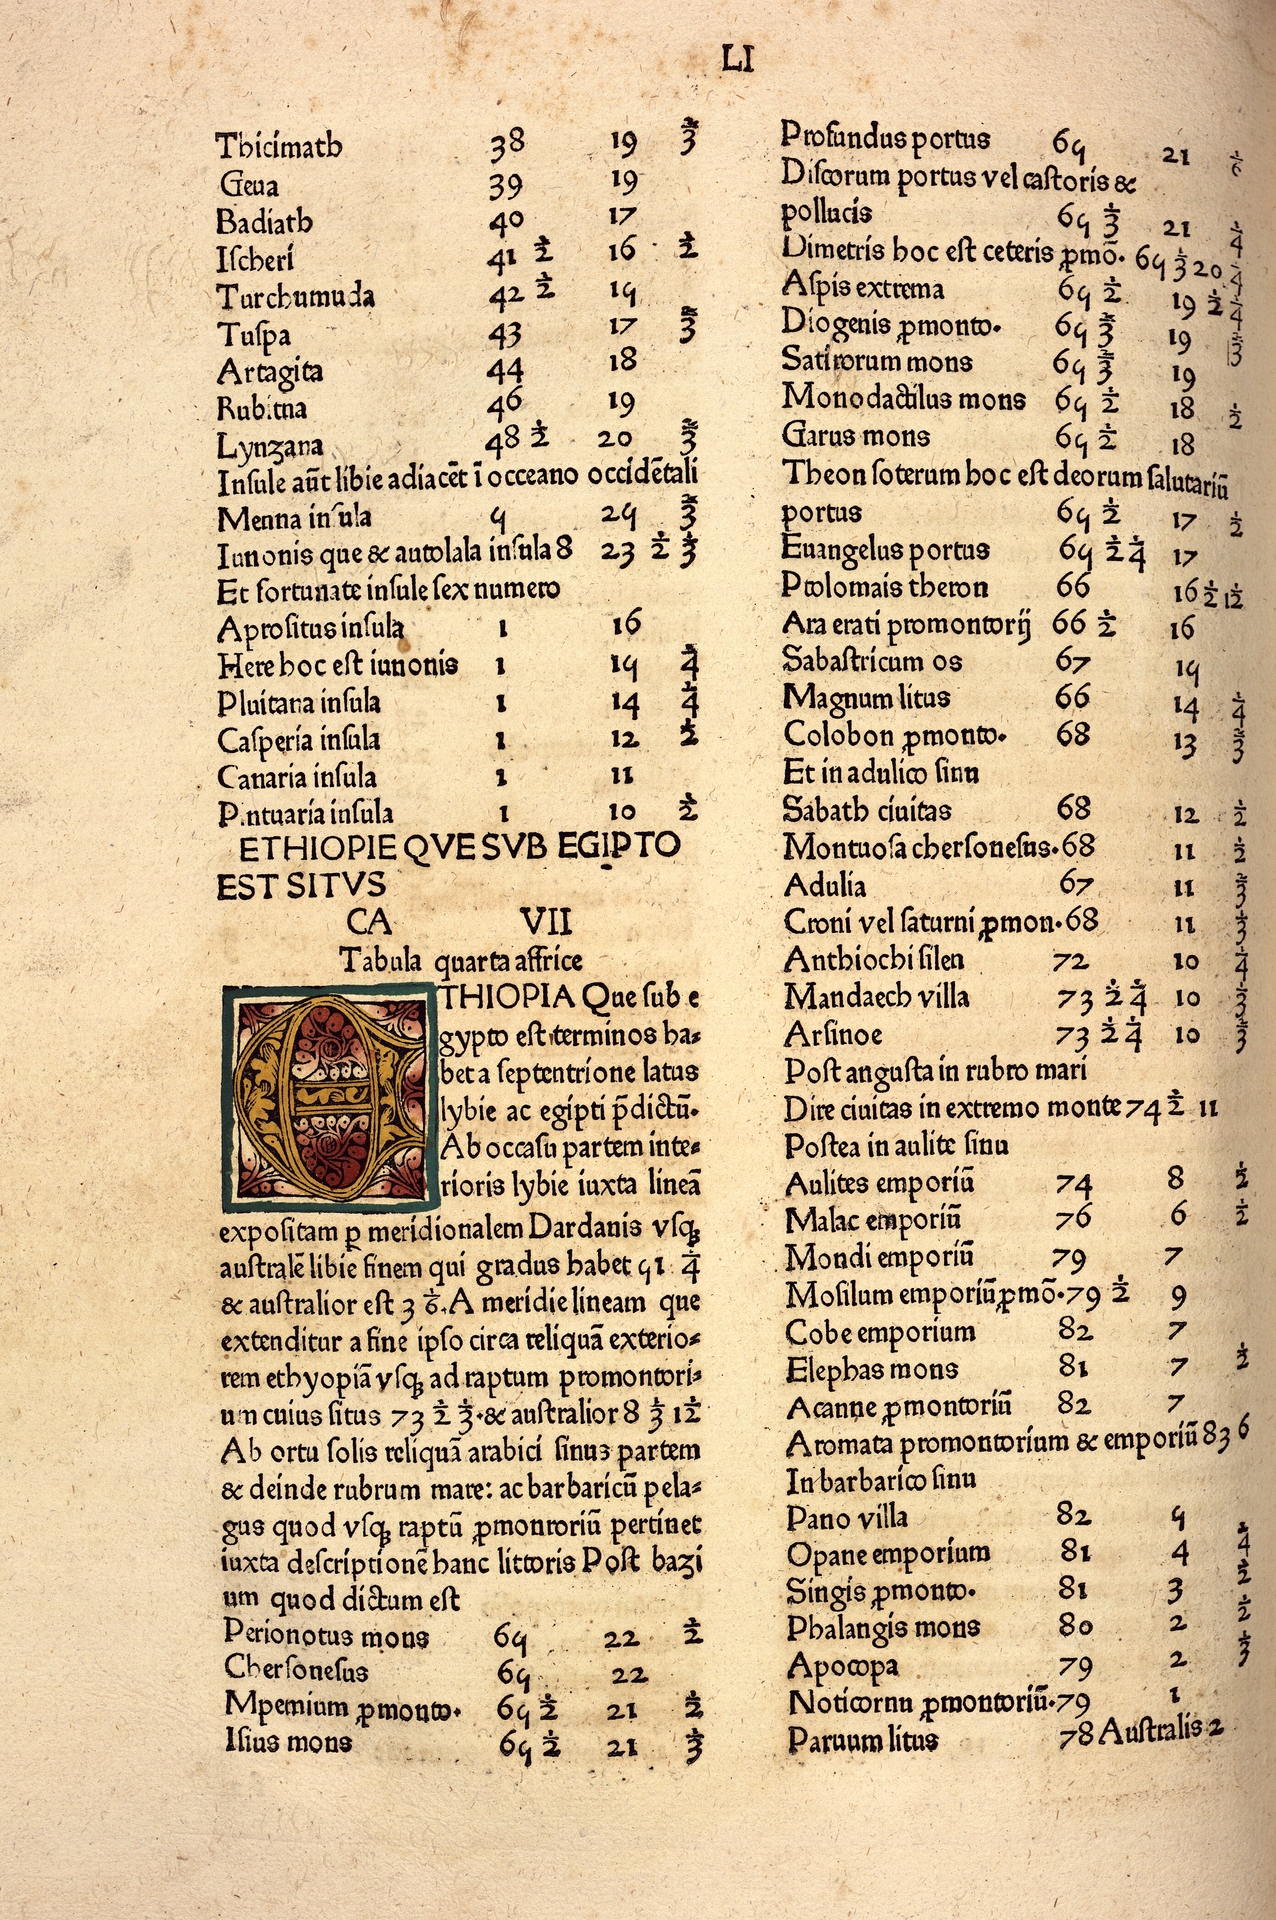 LI
Thicimath 38 19 ⅔
Geua 39 19
Badiath 40 17
Iſcheri 41 ½ 16 ½
Turchumuda 42 ½ 15
Tuſpa 43 17 ⅔
Artagita 44 18
Rubitna 46 19
Lynzana 48 ½ 20 ⅔
Inſule aūt libie adiacēt ī occeano occidētali
Menna inſula 5 25 ⅔
Iunonis que & autolala inſula 8 23 ½ ⅓
Et fortunate inſule ſex numero
Aproſitus inſula 1 16
Here hoc eſt iunonis 1 15 ¼
Pluitana inſula 1 14 ¼
Caſperia inſula 1 12 ½
Canaria inſula 1 11
Pintuaria inſula 1 10 ½
ETHIOPIE QVE SVB EGIPTO
EST SITVS
CA VII
Tabula quarta affrice
ETHIOPIA Que ſub e
gypto eſt terminos ha⸗
bet a ſeptentrione latus
lybie ac egipti p̄dictū.
Ab occaſu partem inte⸗
rioris lybie iuxta lineā
expoſitam ꝑ meridionalem Dardanis vſꝗ
auſtralē libie finem qui gradus habet 51 ¼
& auſtralior eſt 3 ⅙. A meridie lineam que
extenditur a fine ipſo circa reliquā exterio⸗
rem ethyopiā vſꝗ ad raptum promontori⸗
um cuius ſitus 73 ½ ⅓. & auſtralior 8 ⅓ 1/12
Ab ortu ſolis reliquā arabici ſinus partem
& deinde rubrum mare: ac barbaricū pela⸗
gus quod vſꝗ raptū ꝓmontoriū pertinet
iuxta deſcriptionē hanc littoris Poſt bazi
um quod dictum eſt
Perionotus mons 65 22 ½
Cherſoneſus 65 22
Mpemium ꝓmonto. 65 ½ 21 ½
Iſius mons 65 ½ 21 ⅓
Profundus portus 65 21 ⅙
Diſcorum portus vel caſtoris &
pollucis 65 ⅓ 21 ¼
Dimetris hoc eſt ceteris ꝓmō. 65 ⅓ 20 ¼
Aſpis extrema 65 ½ 19 ½ ¼
Diogenis ꝓmonto. 65 ⅔ 19 ⅔
Satirorum mons 65 ⅔ 19
Monodactilus mons 65 ½ 18 ½
Garus mons 65 ½ 18
Theon ſoterum hoc eſt deorum ſalutariū
portus 65 ½ 17 ½
Euangelus portus 65 ½ ¼ 17
Ptolomais theron 66 16 ½ 1/12
Ara erati promontorij 66 ½ 16
Sabaſtricum os 67 15
Magnum litus 66 14 ¼
Colobon ꝓmonto. 68 13 ⅔
Et in adulico ſinu
Sabath ciuitas 68 12 ½
Montuoſa cherſoneſus. 68 11 ½
Adulia 67 11 ⅔
Croni vel ſaturni ꝓmon. 68 11 ⅓
Anthiochi ſilen 72 10 ¼
Mandaech villa 73 ½ ¼ 10 ⅓
Arſinoe 73 ½ ¼ 10 ⅔
Poſt anguſta in rubro mari
Dire ciuitas in extremo monte 74 ½ 11
Poſtea in aulite ſinu
Aulites emporiū 74 8 ½
Malac emporiū 76 6 ½
Mondi emporiū 79 7
Moſilum emporiū ꝓmō. 79 ½ 9
Cobe emporium 82 7
Elephas mons 81 7 ½
Acanne ꝓmontoriū 82 7
Aromata promontorium & emporiū 83 6
In barbarico ſinu
Pano villa 82 5
Opane emporium 81 4 ¼
Singis ꝓmonto. 81 3 ½
Phalangis mons 80 2 ½
Apocopa 79 2 ⅓
Noticornu ꝓmontoriū. 79 1
Paruum litus 78 Auſtralis 2